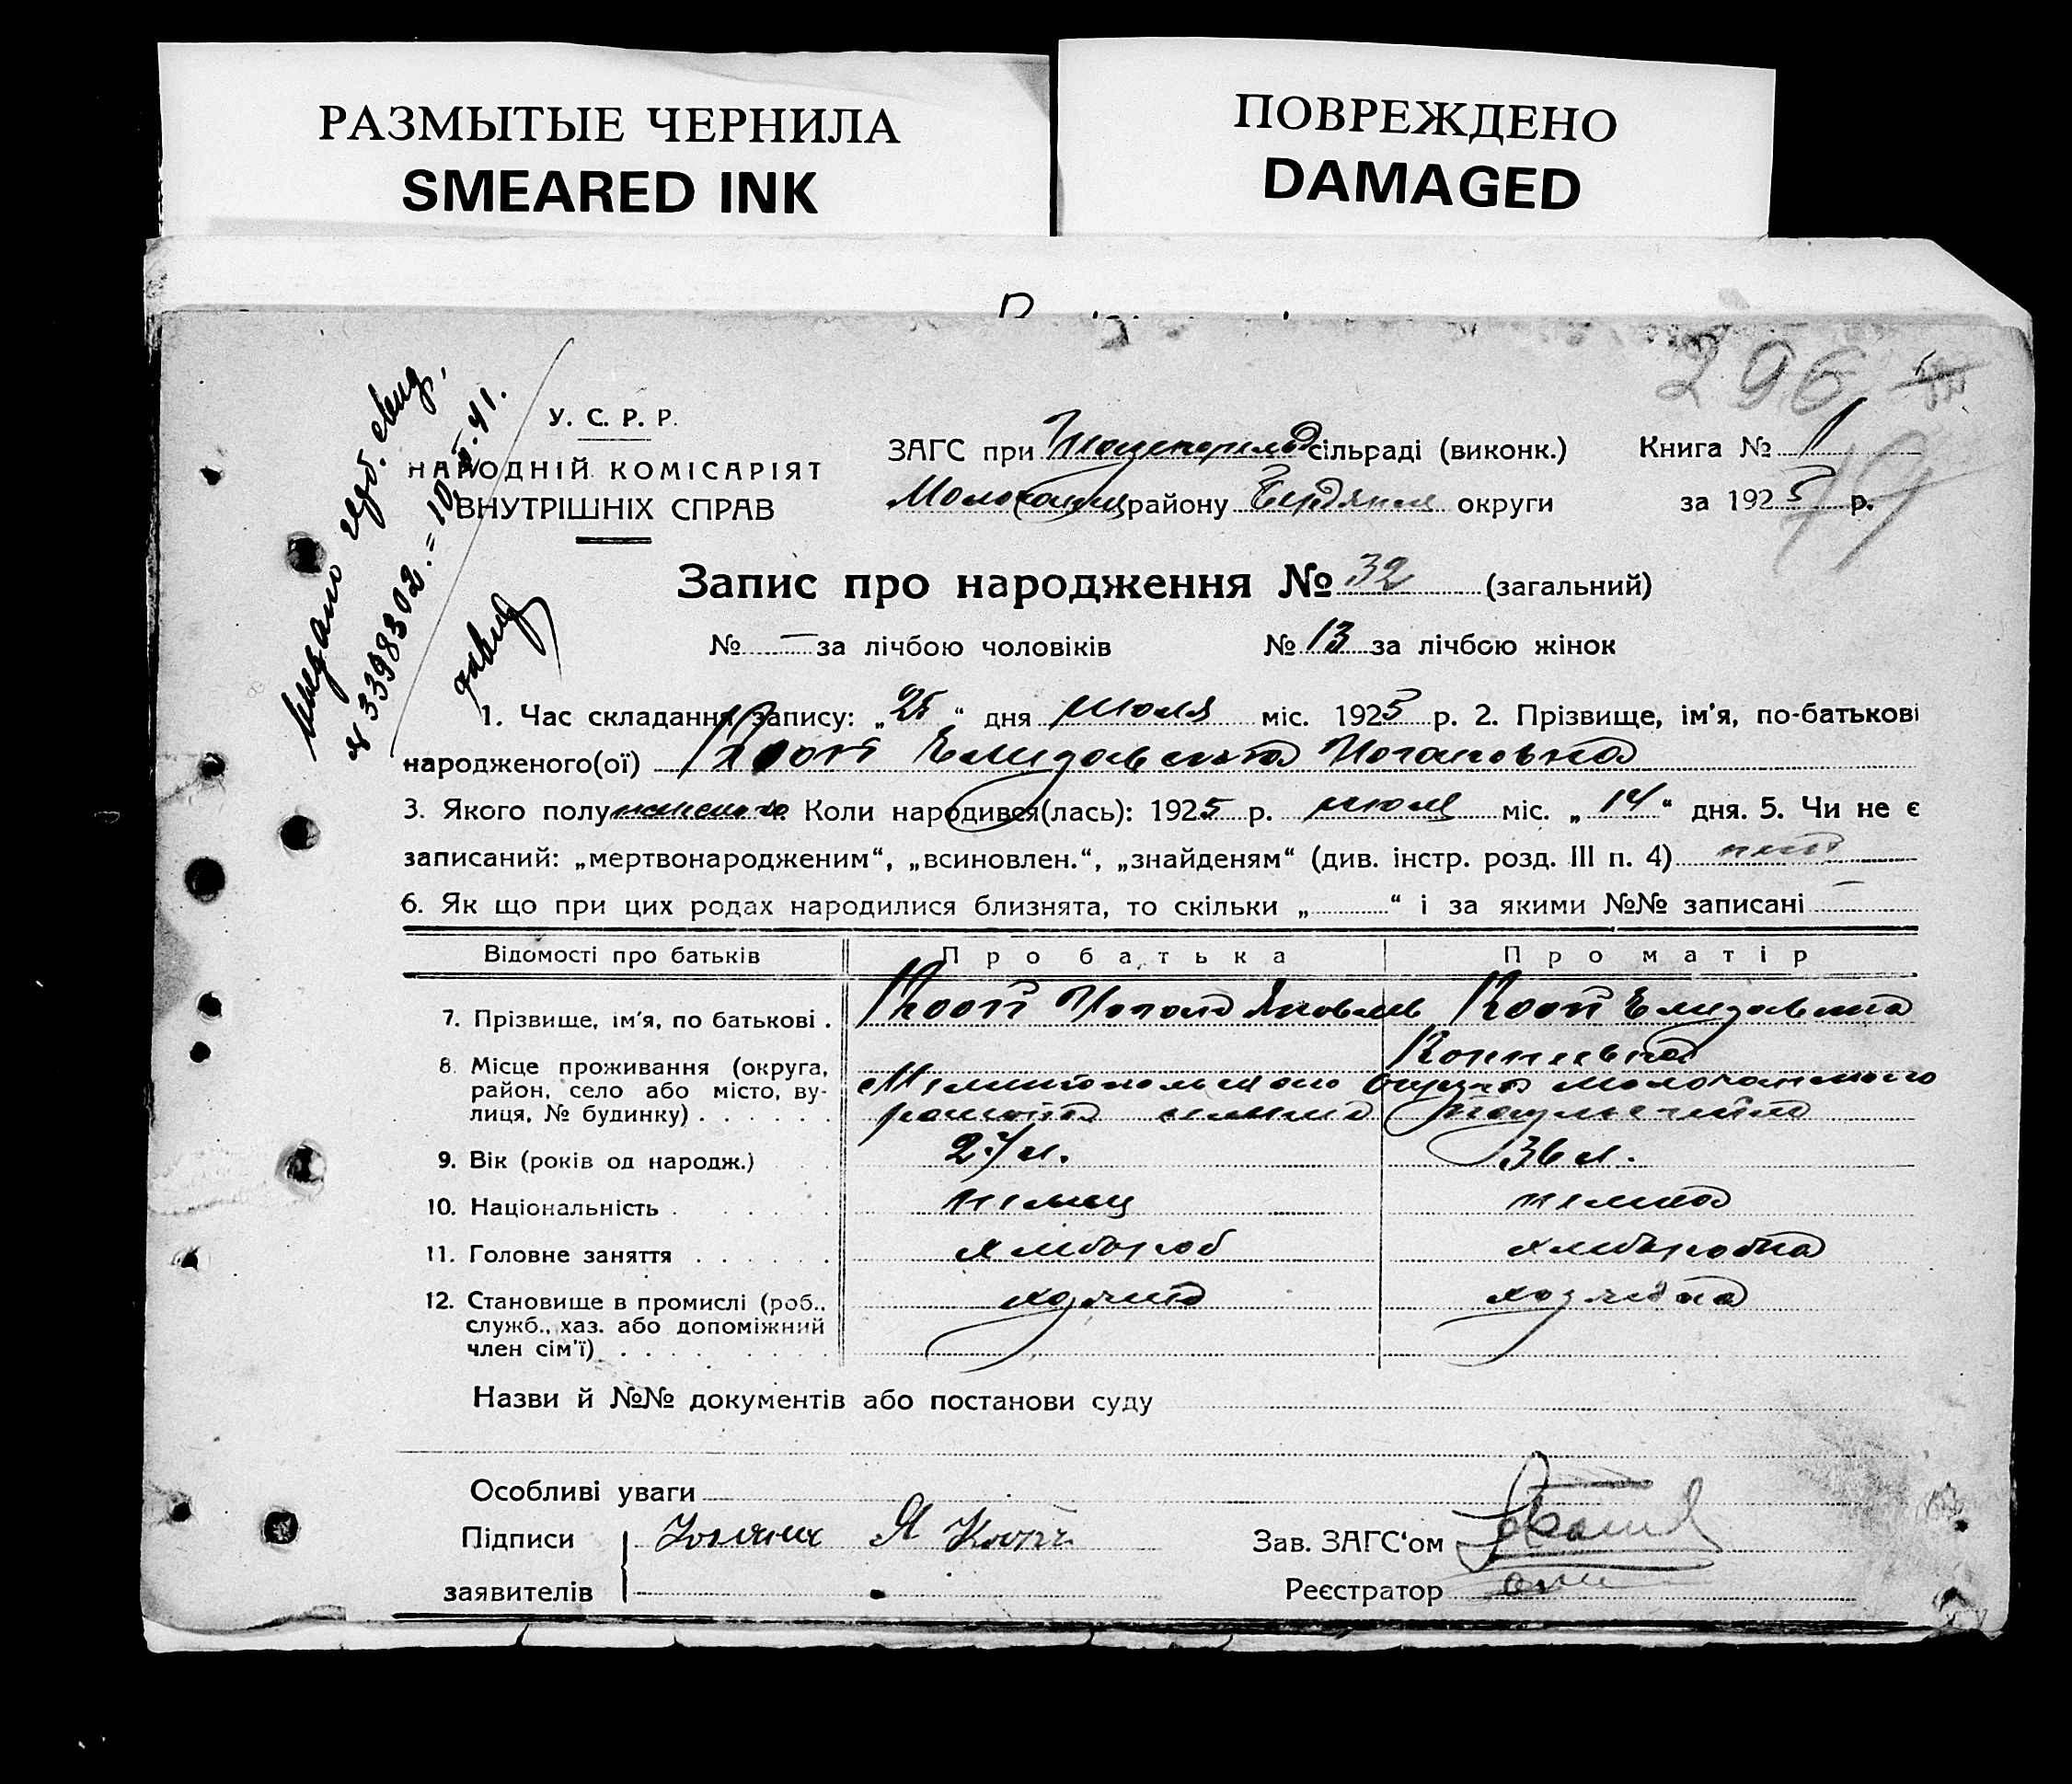 РАЗМЫТЫЕ ЧЕРНИЛА
SMEARED INK
ПОВРЕЖДЕНО
DAMAGED
296
У. С. Р. Р.
НАРОДНІЙ КОМІСАРІЯТ
ВНУТРІШНІХ СПРАВ
ЗАГС при сільраді (виконк.) Книга № 1
района Бердянск округи за 1925 р.
Запис про народження № 32 (загальний)
№ — за лічбою чоловіків № 13 за лічбою жінок
1. Час складання запису: „25“ дня июля міс. 1925 р. 2. Прізвище, ім'я, по-батькові
народженого(ої) Кооп Елизавета Иогановна
3. Якого полу женского Коли народився(лась): 1925 р. июля міс. „14“ дня. 5. Чи не є
записаний: „мертвонародженим“, „всиновлен.“, „знайденям“ (див. інстр. розд. III п. 4) нет
6. Як що при цих родах народилися близнята, то скільки „ “ і за якими №№ записані —
Відомості про батьків Про батька Про матір
7. Прізвище, ім'я, по батькові . Кооп Иоган Яковлев Кооп Елизавета
Корнеевна
8. Місце проживання (округа,
район, село або місто, ву-
лиця, № будинку) . . . . . .
Мелитопольского округа Молочанского
района
9. Вік (років од народж.) 36 л.
10. Національність . немец немка
11. Головне заняття . . . . . . хлебороб хлеборобка
12. Становище в промислі (роб.,
служб., хаз. або допоміжний
член сім'ї) . . . .
хозяин хозяйка
Назви й №№ документів або постанови суду
Особливі уваги
Підписи
заявителів
Зав. ЗАГС'ом
Реєстратор